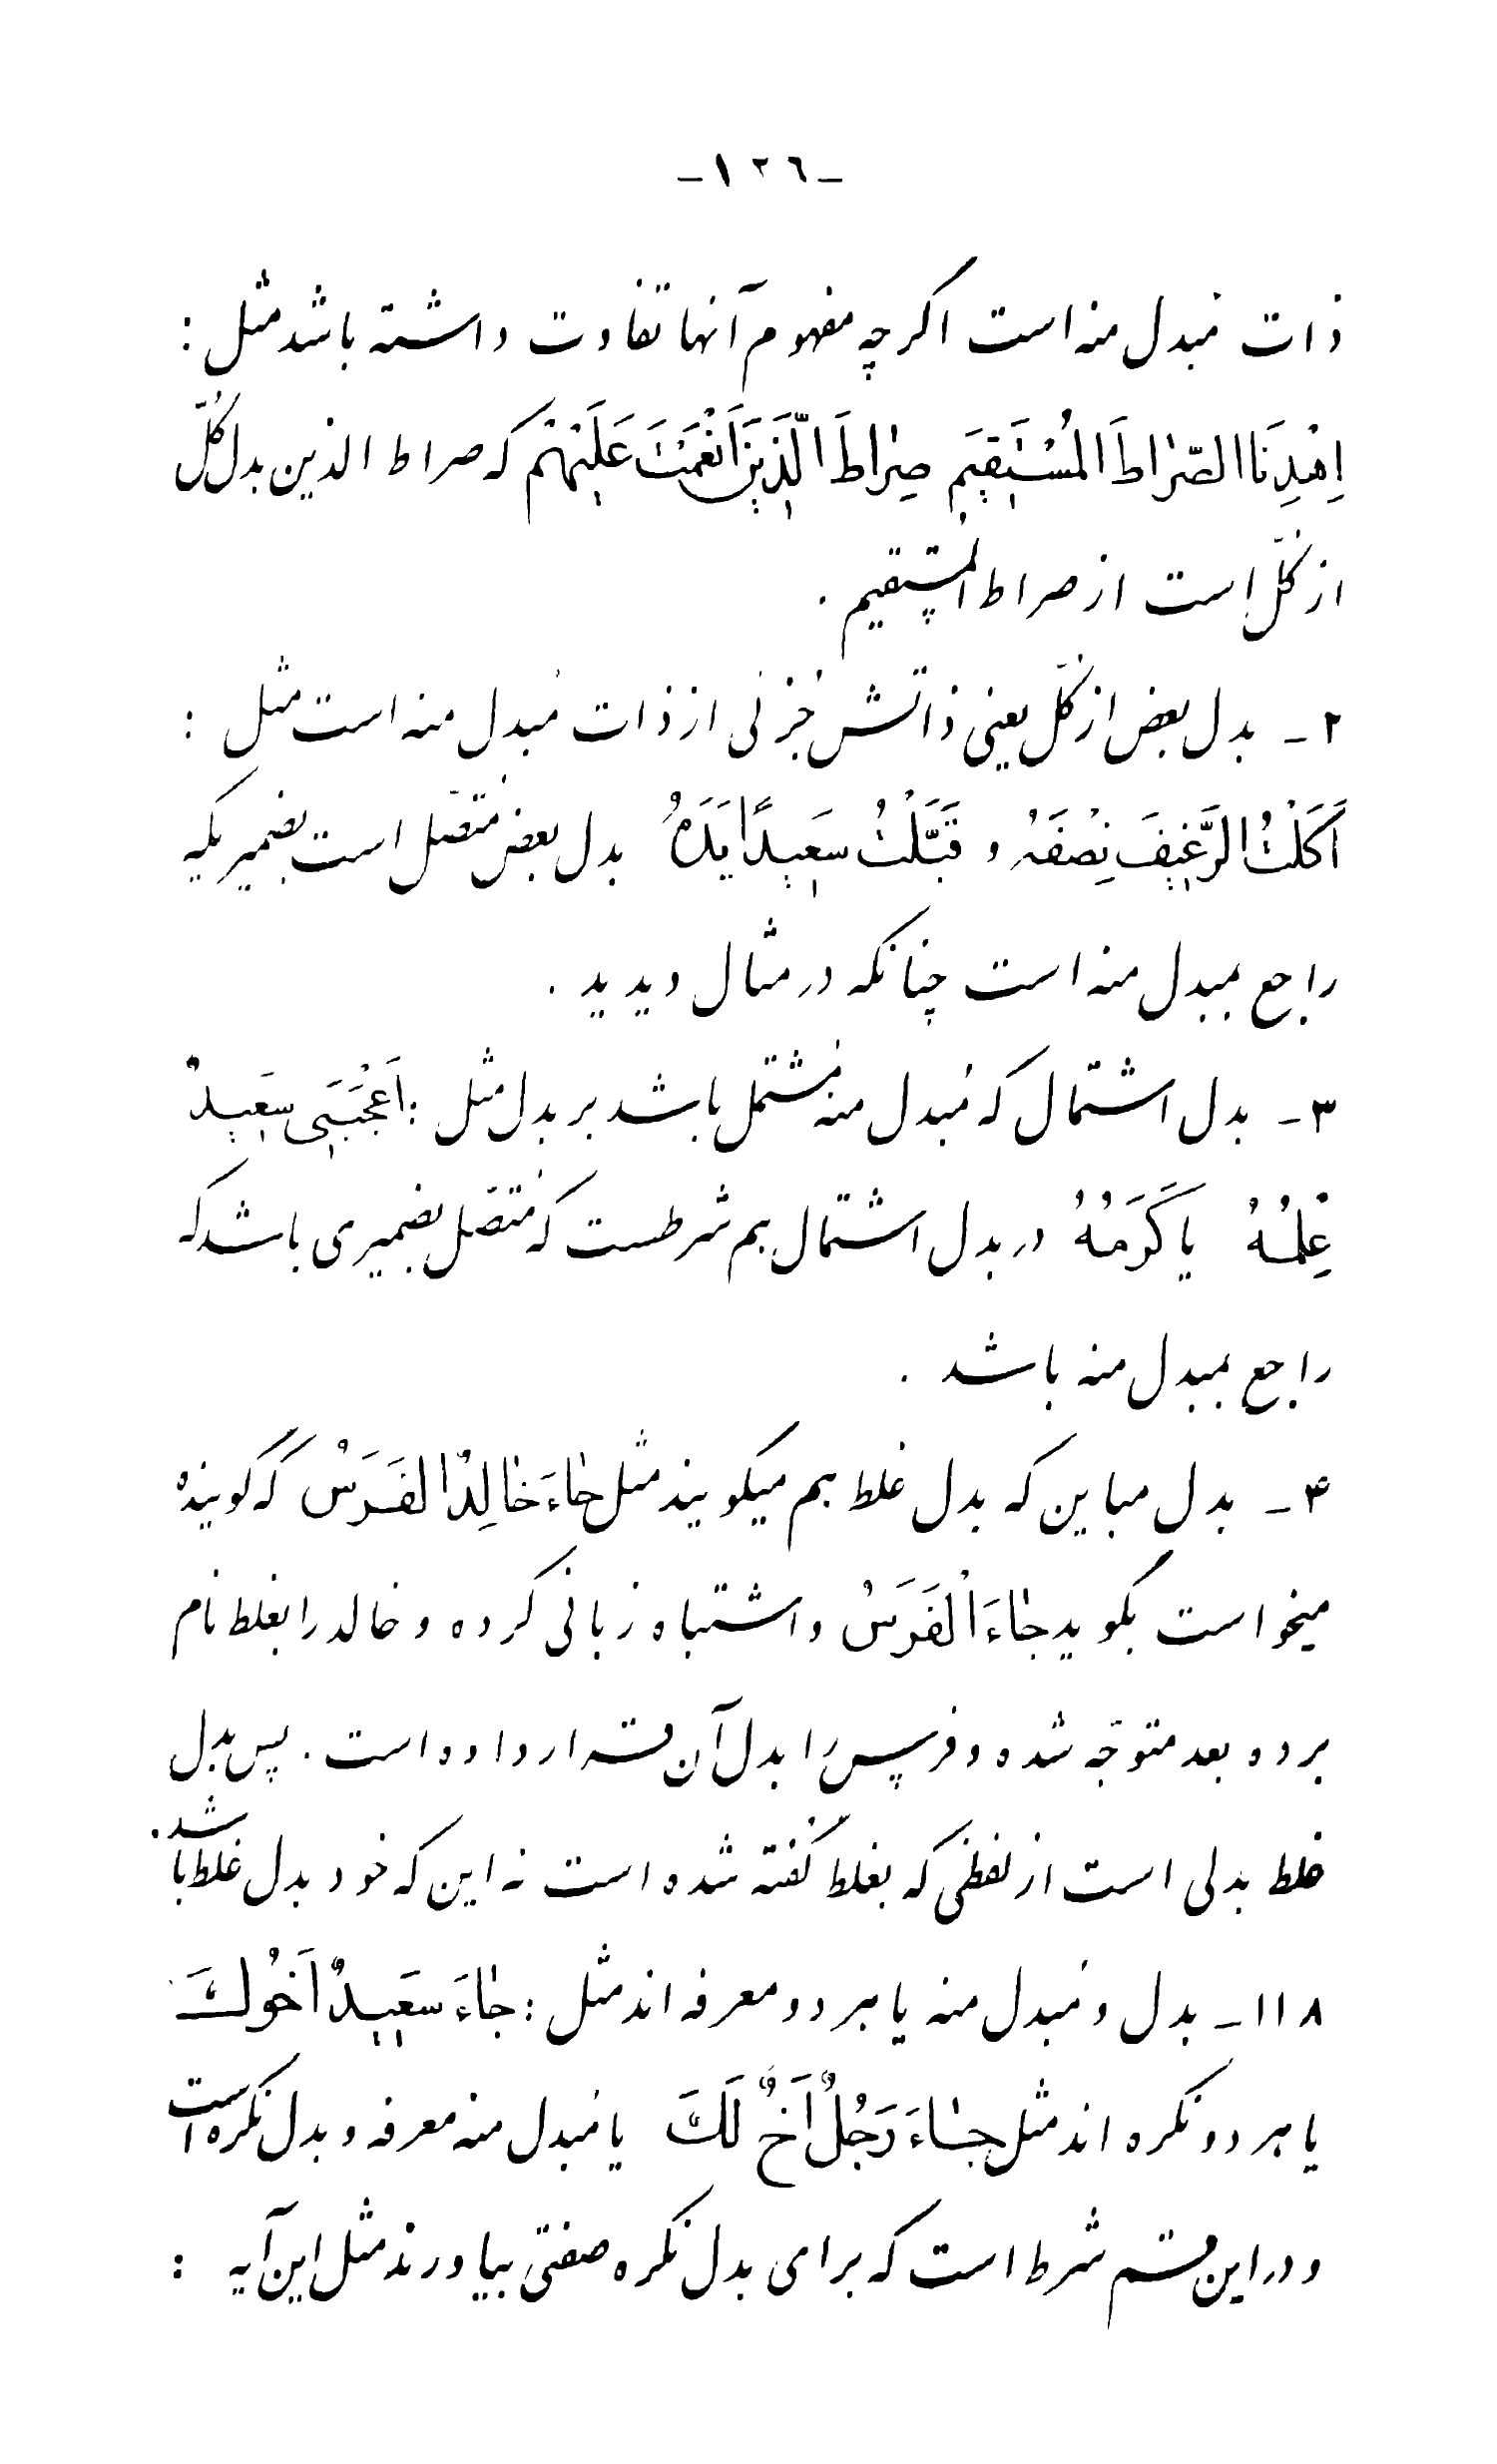 -١٢٦-
ذات مُبدل منه است اگرچه مفهوم آنها تفاوت داشته باشد مثل :
اِهْدِنَا الصِّرٰاطَ الْمُسْتَقِيَم صِرٰاطَ الَّذِيَن اَنْعَمْتَ عَلَيْهِم که صراط الذین بدل کُلّ
از کُلّ است از صراط المُستقیم .
۲ـ بدل بعض از کُلّ یعنی ذاتش جُزئی از ذات مُبدل منه است مثل :
اَكَلْتُ الرَّغيِفَ نِصْفَهُ و قَبَّلْتُ سَعيِدًا يَدَهُ بدل بعض مُتّصل است بضمیریکه
راجع بمبدل منه است چنانکه در مثال دیدید .
۳ـ بدل اشتمال که مُبدل منه مُشتمل باشد بر بدل مثل : اَعْجَبَنِى سَعيِدٌ
عِلْمُهُ یا كَرَمُهُ در بدل اشتمال هم شرطست که مُتّصل بضمیری باشد که
راجع بمبدل منه باشد .
۴ـ بدل مباین که بدل غلط هم میگویند مثل جٰاءَ خٰالِدٌ الفَرَسُ که گوینده
میخواست بگوید جٰاءَ الْفَرَسُ و اشتباه زبانی کرده و خالد را بغلط نام
برده بعد متوجّه شده و فرس را بدل آن قرار داده است . پس بدل
غلط بدلی است از لفظی که بغلط گفته شده است نه این که خود بدل غلط باشد .
۱۱۸ـ بدل و مُبدل منه یا هر دو معرفه اند مثل : جٰاءَ سَعيِدٌ اَخُوكَ
یا هر دو نکره اند مثل جٰاءَ رَجُلٌ اَخٌ لَكَ یا مُبدل منه معرفه و بدل نکره است
و در این قسم شرط است که برای بدل نکره صفتی بیاورند مثل این آیه :